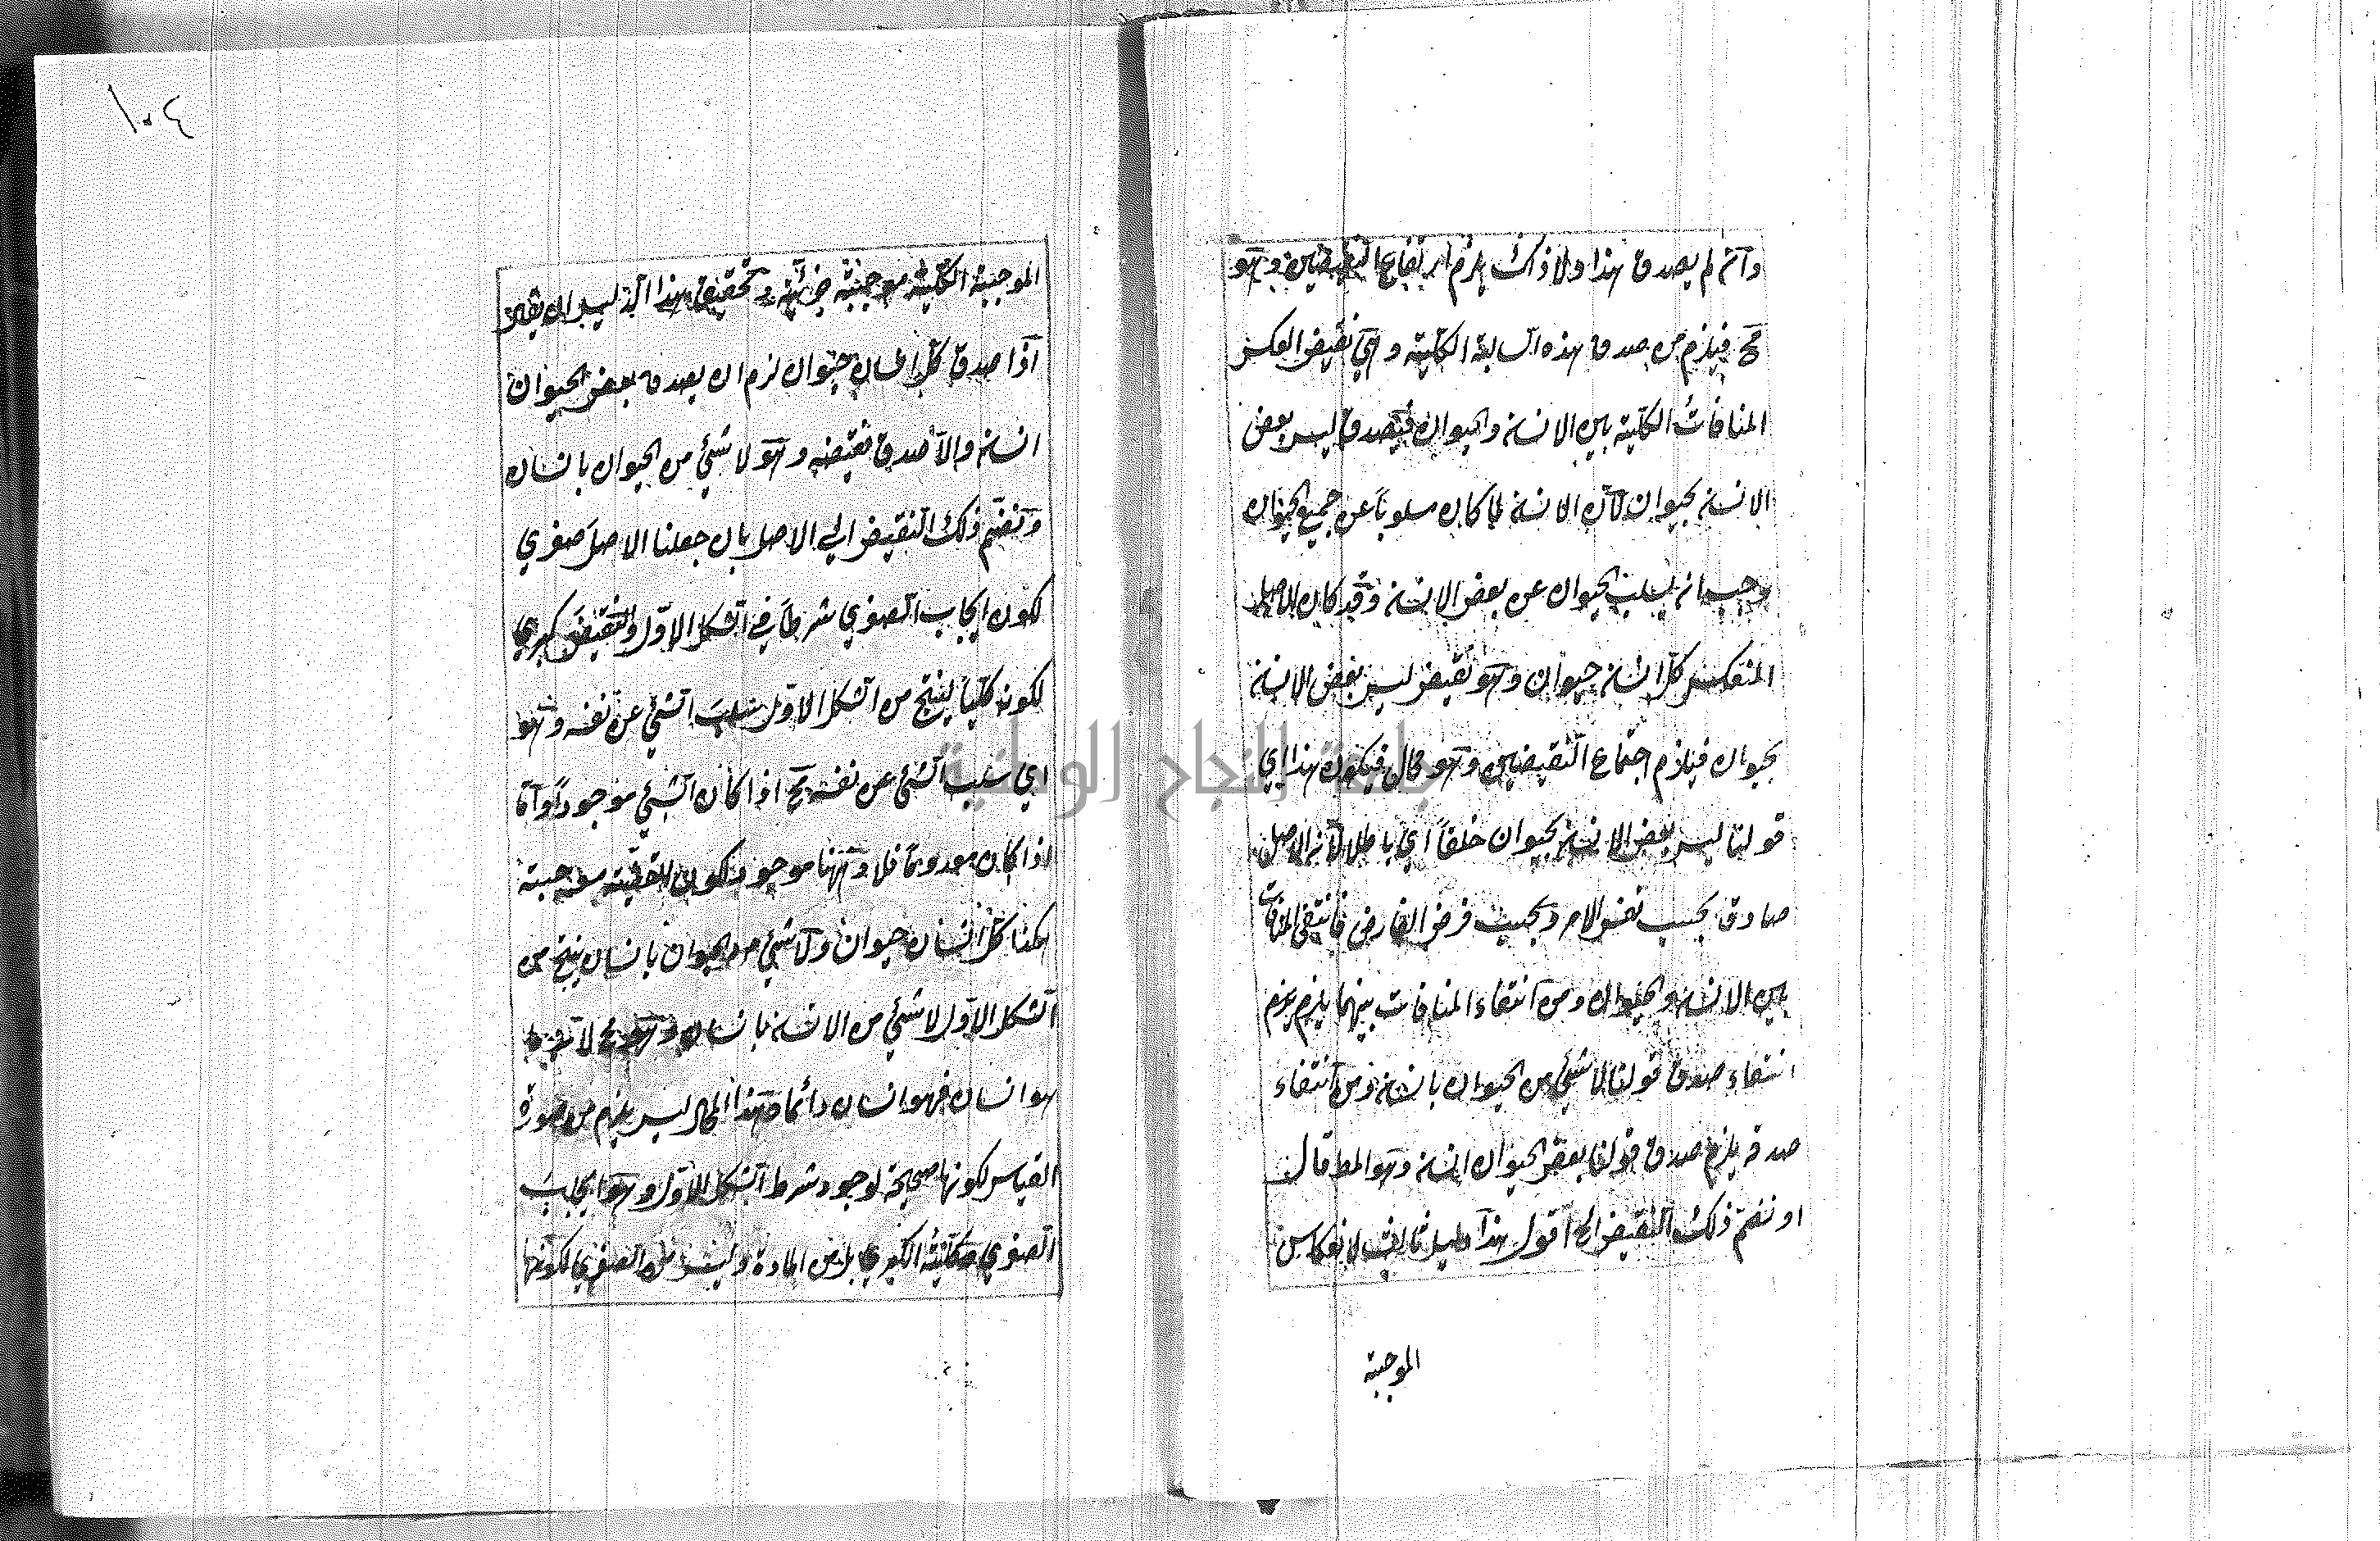 وان لم يصدق هذا ولا ذاك يلزم ارتفاع النقيضين وهو
مح فيلزم من صدق هذه السالبة الكلية وهي نقيض العكس
المنافاتُ الكلية بين الانسان والحيوان فيصدق ليس بعض
الانسان بحيوان لان الانسان لما كان مسلوباً عن جميع الحيوان
وجب ان يسلب الحيوان عن بعض الانسان وقد كان الاصل
المنعكس كل انسان حيوان وهو نقيض ليس بعض الانسان
بحيوان فيلزم اجتماع النقيضين وهو محال فيكون هذا اي
قولنا ليس بعض الانسان بحيوان خلفاً اي باطلا لان الاصل
صادق بحسب نفس الامر وبحسب فرض الفارض فانتفى المنافات
بين الانسان والحيوان ومن انتفاء المنافات بينهما يلزم
انتفاء صدق قولنا لا شئ من الحيوان بانسان ومن انتفاء
صدقه يلزم صدق قولنا بعض الحيوان انسان وهو المط قال
او نضم ذلك النقيض الخ اقول هذا دليل ثان لانعكاس
الموجبة
١٠٤
الموجبة الكلية موجبة جزئية وتحقيق هذا الدليل ان يقال
اذا صدق كل انسان حيوان لزم ان يصدق بعض الحيوان
انسان والا صدق نقيضه وهو لا شئ من الحيوان بانسان
ونضم ذلك النقيض الى الاصل بان جعلنا الاصل صغري
لكون ايجاب الصغري شرطاً في الشكل الاول والنقيض كبري
لكونه كلياً لينتج من الشكل الاول سلب الشئ عن نفسه وهو
اي سلب الشئ عن نفسه مح اذا كان الشئ موجوداً واما
اذا كان معدوما فلا وههنا موجود لكون القضية موجبة
هكذا كل انسان حيوان ولا شئ من الحيوان بانسان ينتج من
الشكل الاول لا شئ من الانسان بانسان وهو مح لان
هو انسان فهو انسان دائما وهذا المحال ليس يلزم من صورة
القياس لكونها صحيحة لوجود شرط الشكل الاول وهو ايجاب
الصغري وكلية الكبري بل من المادة وليست من الصغري لكونها
جامعة النجاح الوطنية